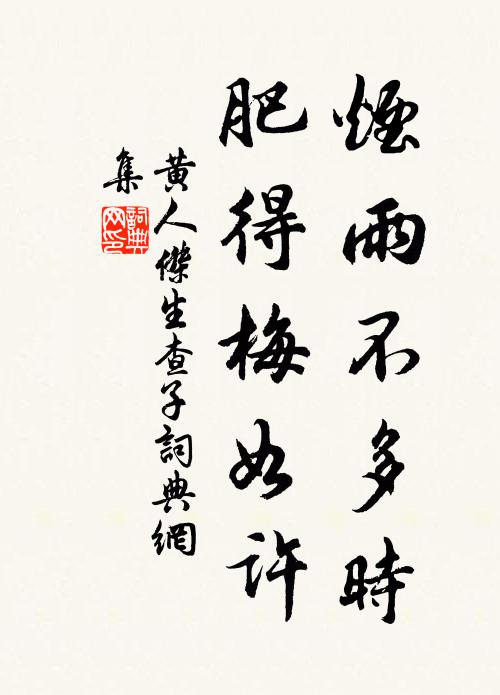 煙雨不多時
肥得梅如許
黄人傑生查子詞典網
集
詞典网印